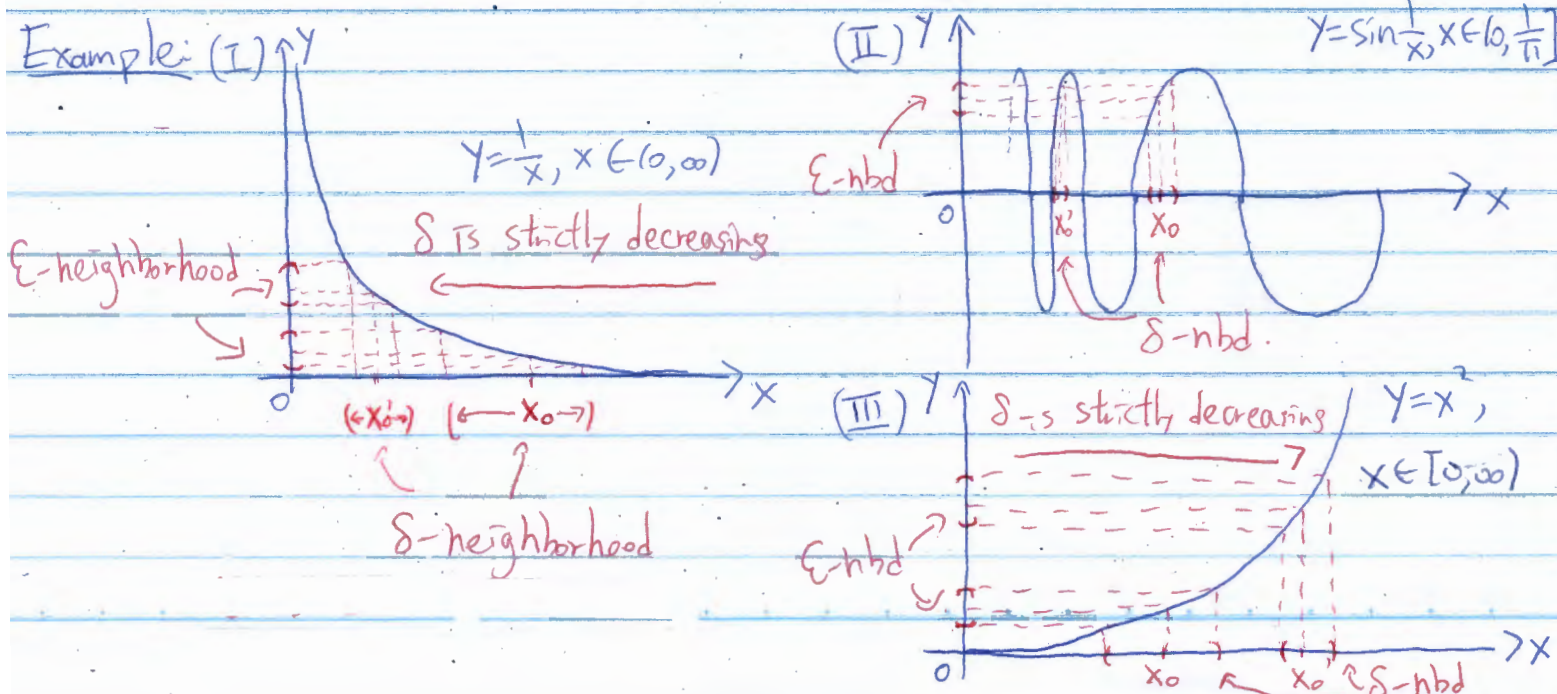 Example: (I) Y
y=1/x, x∈(0,∞)
δ is strictly decreasing
ε-neighborhood
0 X
x₀' x₀
δ-neighborhood
(II) Y
y=sin 1/x, x∈(0, 1/π]
ε-nbd
0 X
x₀' x₀
δ-nbd.
(III) Y
δ is strictly decreasing
y=x²,
x∈[0,∞)
ε-nbd
0 X
x₀ x₀' δ-nbd